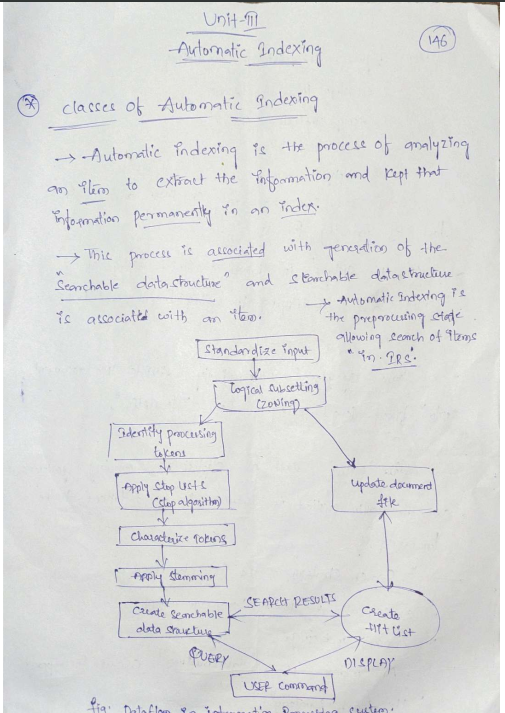 Unit-III
146
Automatic Indexing
* classes of Automatic Indexing
→ Automatic indexing is the process of analyzing
an item to extract the information and kept that
information permanently in an index.
→ This process is associated with generation of the
"Searchable data structure" and Searchable datastructure
is associated with an item.
→ Automatic Indexing is
the preprocessing stage
allowing search of items
"in IRS".
Standardize input
Logical subsetting
(zoning)
Identify processing
tokens
Update document
file
Apply Stop Lists
(stop algorithm)
Characterize tokens
Apply stemming
Create Searchable
data structure
SEARCH RESULTS
Create
Hit List
QUERY
DISPLAY
USER Command
fig: Dataflow in information Processing system.